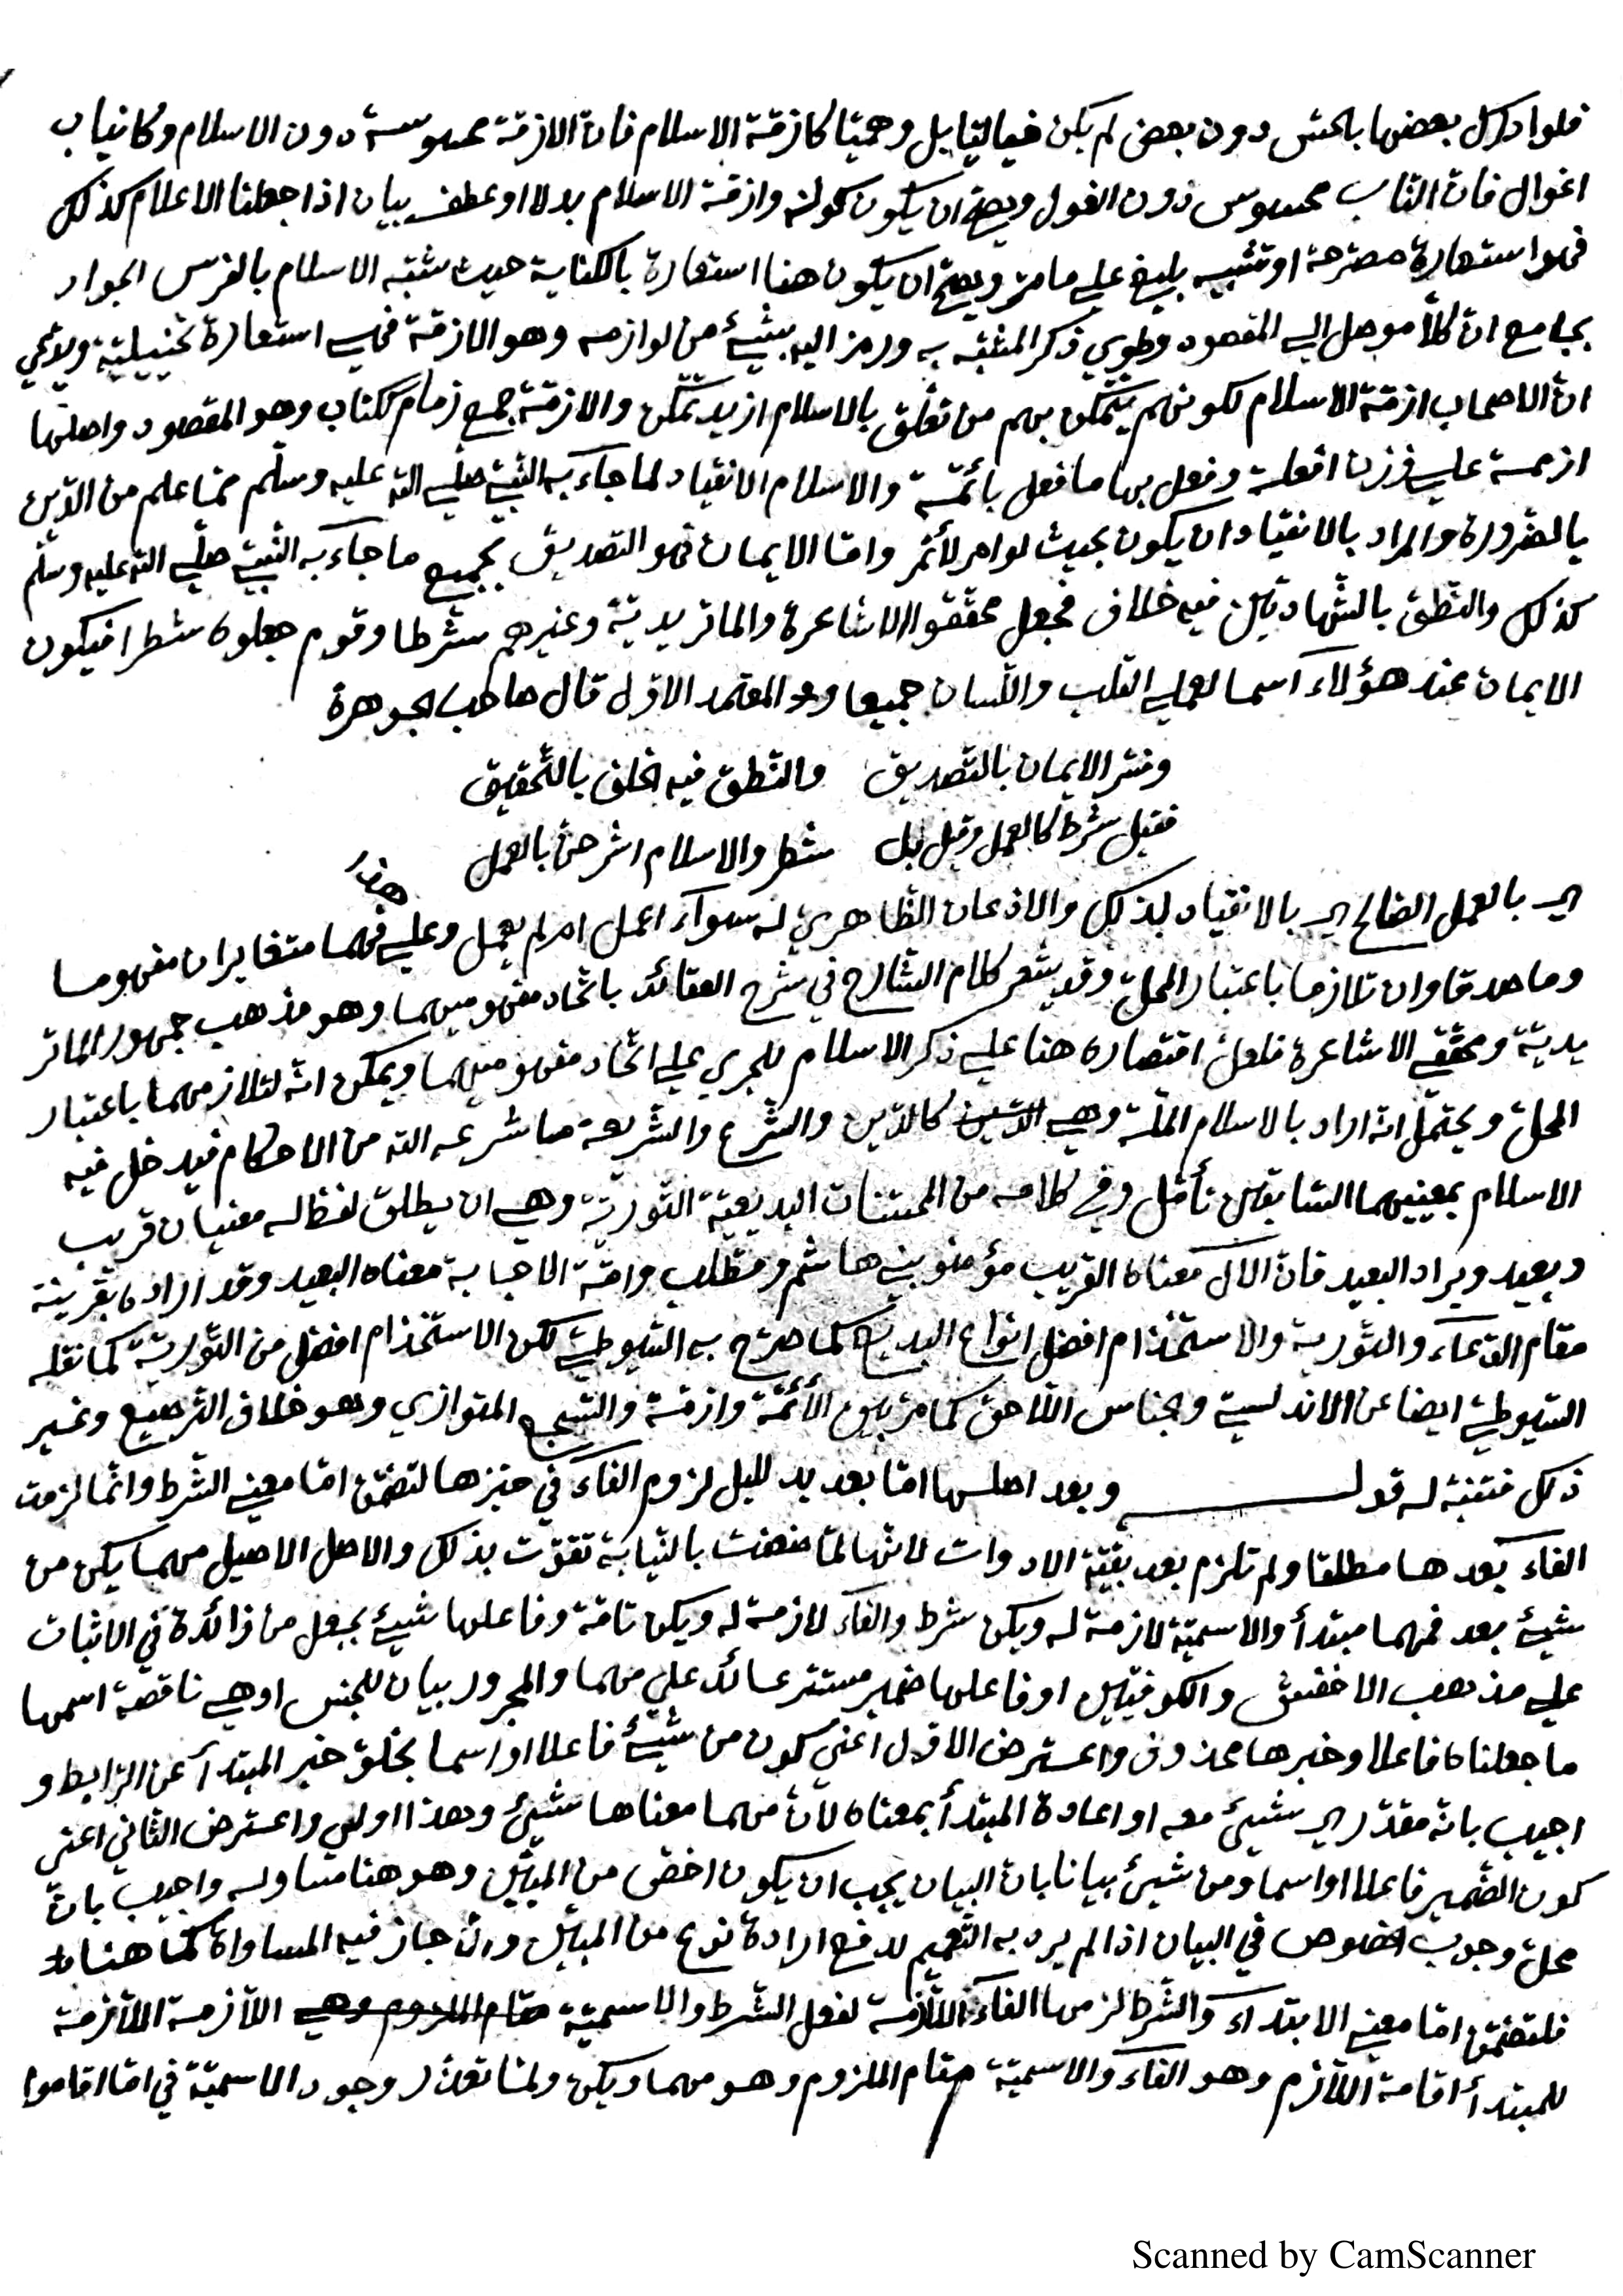 فلو ادرك بعضها بالحس دون بعض لم يكن خياليا بل وهميّا كازمّة الاسلام فانّ الازمّة محسوسة دون الاسلام وكانياب
اغوال فانّ الناب محسوس دون الغول ويصحّ ان يكون كوله وازمّة الاسلام بدلا او عطف بيان اذا جعلنا الاعلام كذلك
فهو استعارة مصرّحة او تشبيه بليغ علي ما مرّ ويصحّ ان يكون هنا استعارة بالكناية حيث شبّه الاسلام بالفرس الجواد
بجامع انّ كلّا موصل الي المقصود وطوي ذكر المشبّه به ورمز اليه بشيئ من لوازمه وهو الازمّة فهي استعارة تخييليّة ويدّعي
انّ الاصحاب ازمّة الاسلام لكونهم يتمكّن بهم من تعلّق بالاسلام ازيد تمكّن والازمّة جمع زمام ككتاب وهو المقصود واصلها
ازممة علي وزن افعلة وفعل بها ما فعل بائمّة والاسلام الانقياد لما جآء به النّبيّ صلّي اللّه عليه وسلّم ممّا علم من الدّين
بالضّرورة والمراد بالانقياد ان يكون بحيث لو امر لأتمر وامّا الايمان فهو التصديق بجميع ما جآء به النّبيّ صلّي اللّه عليه وسلّم
كذلك والنّطق بالشّهادتين فيه خلاف فجعل محقّقوا الاشاعرة والماتريديّة وغيرهم شرطا وقوم جعلوه شطرا فيكون
الايمان عند هؤلاء اسما لعملي القلب واللّسان جميعا و المعتمد الاوّل قال صاحب الجوهرة
وفسّر الايمان بالتّصديق والنّطق فيه الخلف بالتّحقيق
فقيل شرط كالعمل وقيل بل شطر والاسلام اشرحنّ بالعمل
اي بالعمل الصّالح اي بالانقياد لذلك والاذعان الظّاهريّ له سوآء اعمل ام لم يعمل وعلي هذا فهما متغايران مفهوما
وماصدقا وان تلازما باعتبار المحلّ وقد يشعر كلام الشّارح في شرح العقائد باتّحاد مفهوميهما وهو مذهب جمهور الماتر
يديّة ومحقّقي الاشاعرة فلعلّ اقتصاره هنا علي ذكر الاسلام للجري علي اتّحاد مفهوميهما ويمكن انّه لتلازمهما باعتبار
المحلّ ويحتمل انّه اراد بالاسلام الملّة وهي الدّين كالدّين والشّرع والشّريعة ما شرعه اللّه من الاحكام فيدخل فيه
الاسلام بمعنييهما السّابقين تأمّل وفي كلامه من المحسّنات البديعيّة التّوريّة وهي ان يطلق لفظ له معنيان قريب
وبعيد ويراد البعيد فانّ الآل معناه القريب مؤمنو بني هاشم ومطّلب وامّة الاجابة معناه البعيد وقد اراده بقرينة
مقام الدّعآء والتّورية والاستخدام افضل انواع البديع كما صرّح به السّيوطيّ لكن الاستخدام افضل من التّوريّة كما نقله
السّيوطيّ ايضا عن الاندلسيّ والجناس اللّاحق كما مرّ بين الأئمّة وازمّة والسّجع المتوازي وهو خلاف التّرصيع وغير
ذلك فتنبّه له قوله وبعد اصلها امّا بعد بدليل لزوم الفآء في حيّزها لتضمّن امّا معني الشّرط وانّما لزمت
الفآء بعدها مطلقا ولم تلزم بعد بقيّة الادوات لانّها لمّا ضعفت بالنّيابة تقوّت بذلك والاصل الاصيل مهما يكن من
شيئ بعد فمهما مبتدأ والاسميّة لازمة له ويكن شرط والفآء لازمة له ويكن تامّة وفاعلها شيئ بجعل من زائدة في الاثبات
علي مذهب الاخفش والكوفيّين او فاعلها ضمير مستتر عائد علي مهما والمجرور بيان للجنس او هي ناقصة اسمها
ما جعلناه فاعلا وخبرها محذوف واعترض الاوّل اعني كون من شيئ فاعلا او اسما بخلوّ خبر المبتدأ عن الرّابط و
اجيب بانّه مقدّر اي شيئ معه او اعادة المبتدأ بمعناه لأنّ مهما معناها شيئ وهذا اولي واعترض الثاني اعني
كون الضّمير فاعلا او اسما ومن شيئ بيانا بانّ البيان يجب ان يكون اخصّ من المبيّن وهو هنا مساو له واجيب بانّ
محلّ وجوب الخصوص في البيان اذا لم يرد به التّعميم لدفع ارادة نوع من المبيّن والّا جاز فيه المساواة كما هنا
فلتضمّن امّا معني الابتدآء والشّرط لزمها الفآء اللّازمة لفعل الشّرط والاسميّة مقام الملزوم وهي اللّازمة اللّازمة
للمبتدأ اقامة اللّازم وهو الفآء والاسميّة مقام الملزوم وهو مهما ويكن ولمّا تعذّر وجود الاسميّة في امّا اقاموا
Scanned by CamScanner